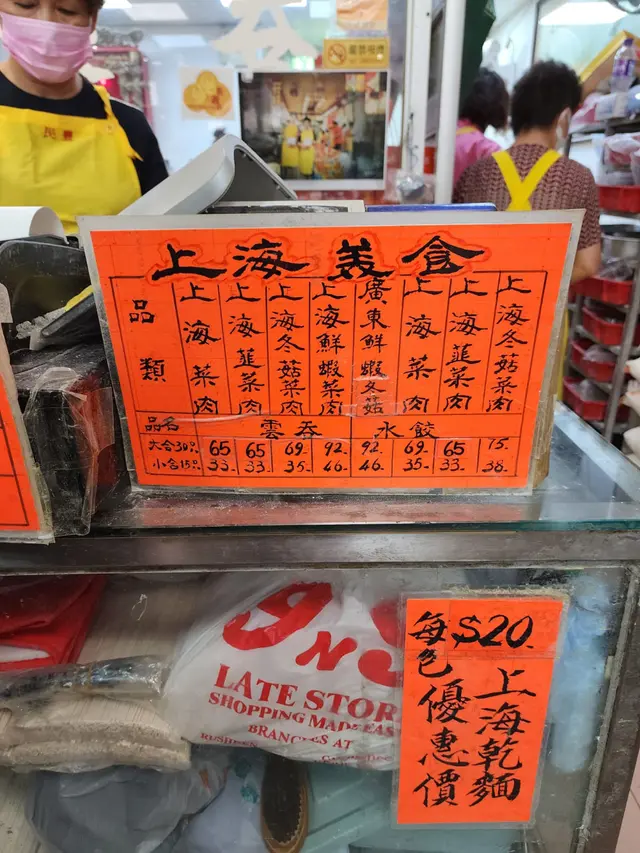 上海美食
品類
上海菜肉
上海韮菜肉
上海冬菇菜肉
上海鮮蝦菜肉
廣東鮮蝦冬菇
上海菜肉
上海韮菜肉
上海冬菇菜肉
品名 雲吞 水餃
大合30. 65 65 69. 92. 92. 69. 65. 75.
小合15. 33. 33. 35. 46 46. 35. 33. 38.
LATE STOR
SHOPPING MADE EAS
BRANCHES AT
$20.
上海乾麵
每包優惠價